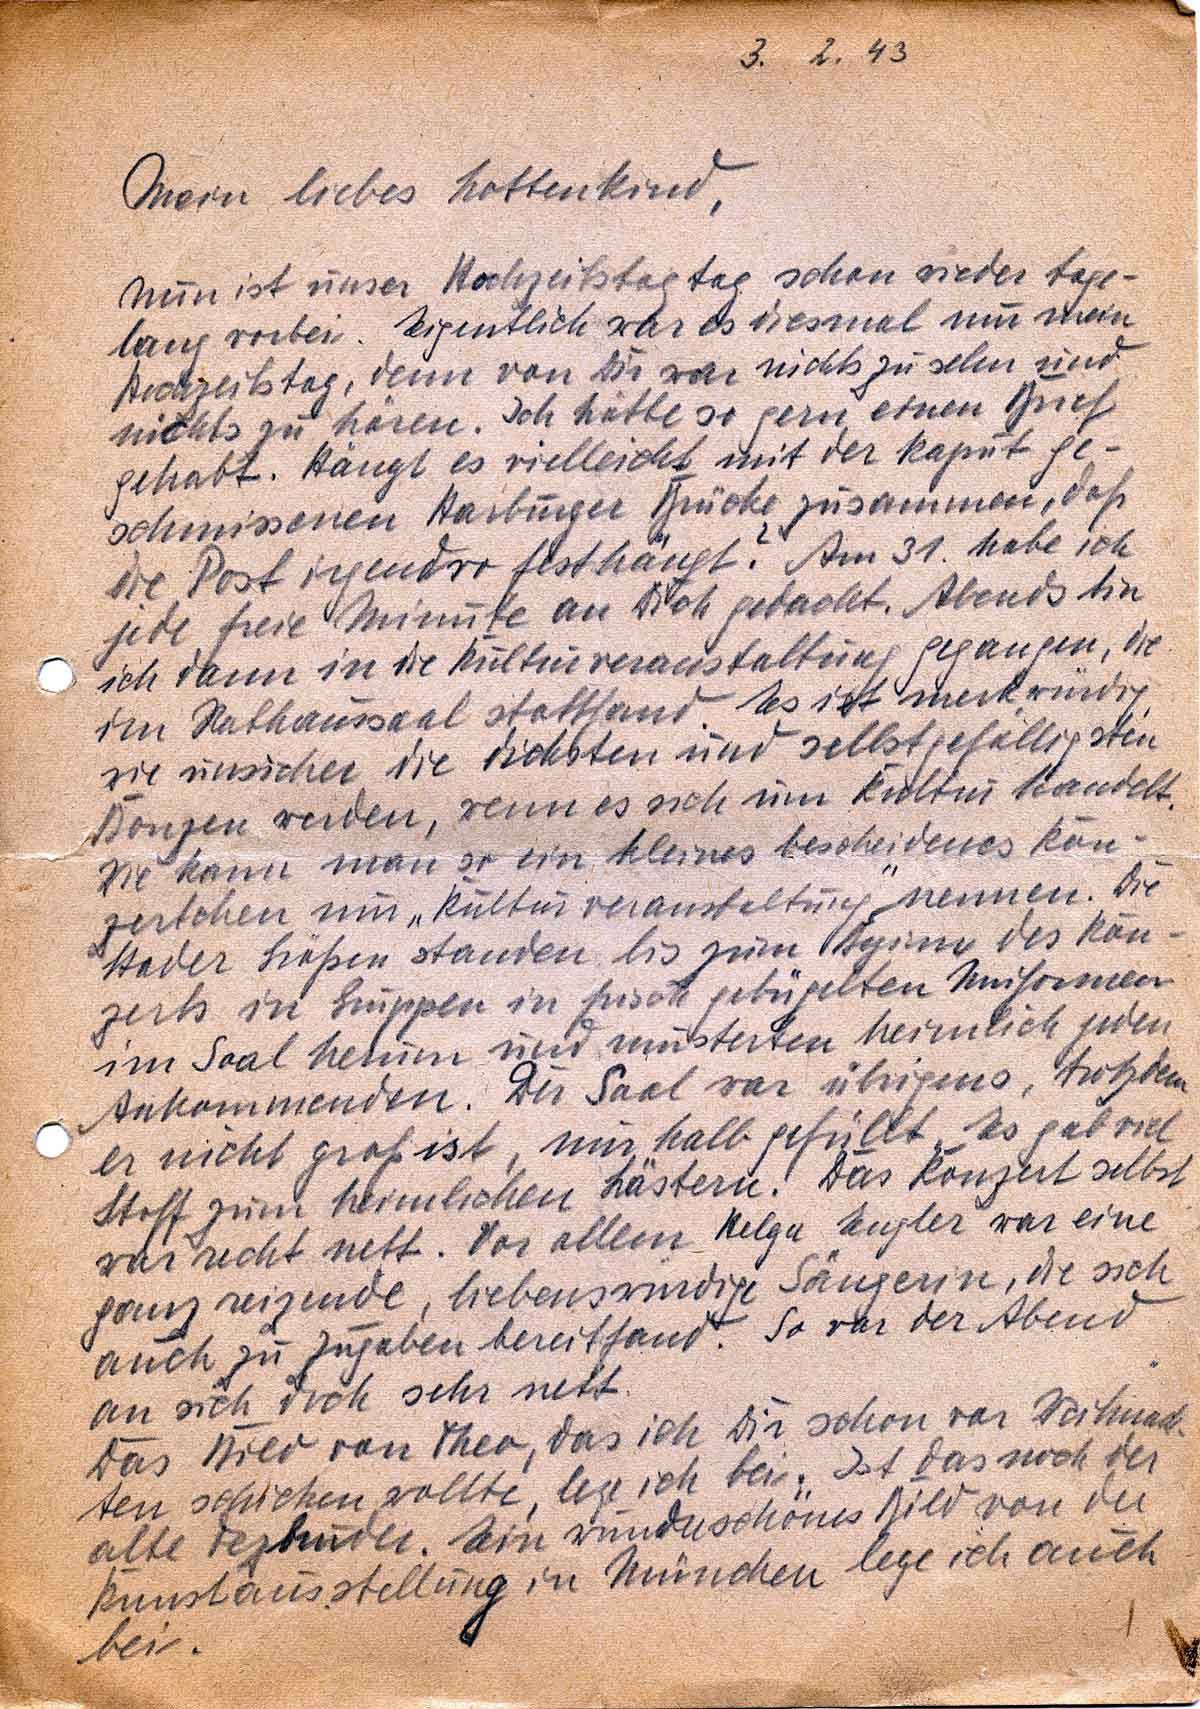 3. 2. 43
Mein liebes Lottenkind,
nun ist unser Hochzeitstag tag schon wieder tage-
lang vorbei. Eigentlich war es diesmal nur mein
Hochzeitstag, denn von Dir war nichts zu sehn und
nichts zu hören. Ich hätte so gern einen Brief
gehabt. Hängt es vielleicht mit der kaput ge-
schmissenen Harburger Brücke zusammen, daß
die Post irgendwo festhängt? Am 31. habe ich
jede freie Minute an Dich gedacht. Abends bin
ich dann in die Kulturveranstaltung gegangen, die
im Rathaussaal stattfand. Es ist merkwürdig,
wie unsicher die dicksten und selbstgefälligsten
Bonzen werden, wenn es sich um Kultur handelt.
Wie kann man so ein kleines bescheidenes Kon-
zertchen nur „Kulturveranstaltung" nennen. Die
Stader Größen standen bis zum Beginn des Kon-
zerts in Gruppen in frisch gebügelten Uniformen
im Saal herum und musterten heimlich jeden
Ankommenden. Der Saal war übrigens, trotzdem
er nicht groß ist, nur halb gefüllt. Es gab viel
Stoff zum heimlichen Lästern! Das Konzert selbst
war recht nett. Vor allem Helga Engler war eine
ganz reizende, liebenswürdige Sängerin, die sich
auch zu Zugaben bereitfand. So war der Abend
an sich doch sehr nett.
Das Bild von Theo, das ich Dir schon vor Weihnach-
ten schicken wollte, lege ich bei. Ist das noch der
alte Ein wunderschönes Bild von der
Kunstausstellung in München lege ich auch
bei.